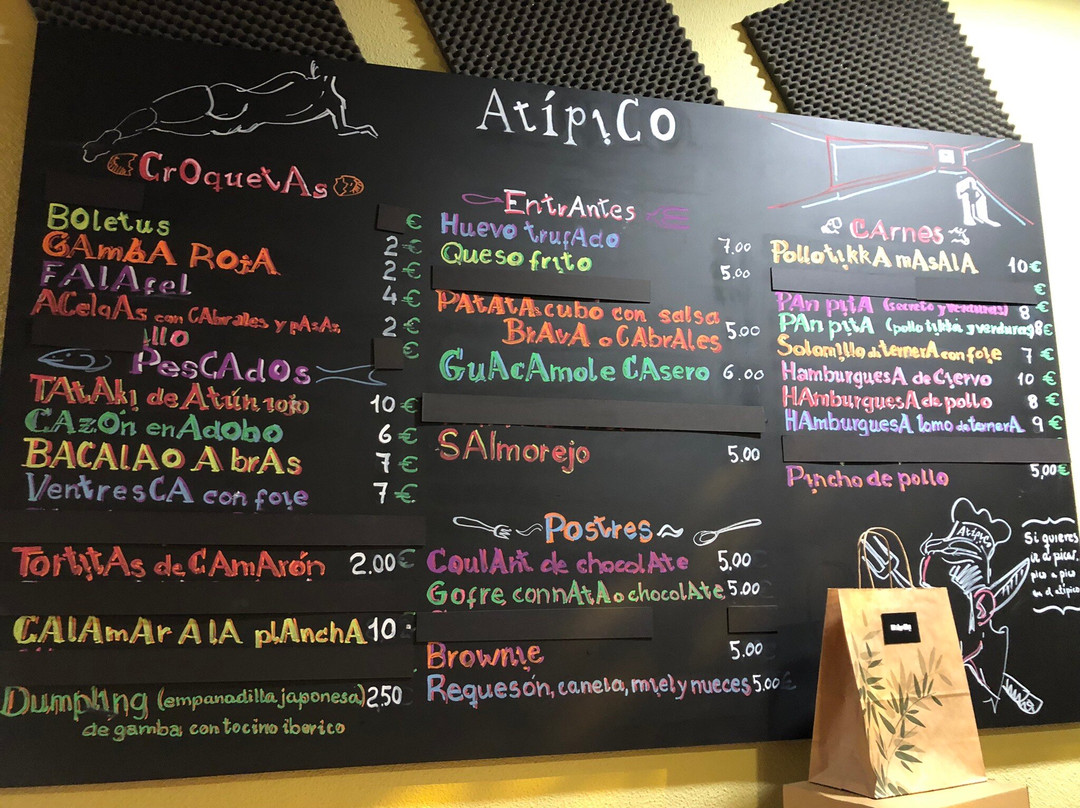 Atípico
Croquetas
Boletus €
Gamba Roja 2€
Falafel 2€
4€
Acelgas con Cabrales y pasas 2€
llo €
Pescados
Tataki de Atún rojo 10€
Cazón en Adobo 6€
Bacalao A brAs 7€
Ventresca con foie 7€
Tortitas de Camarón 2.00€
Calamar a la plancha 10
Dumpling (empanadilla japonesa) 2.50
de gamba con tocino iberico
Entrantes
Huevo trufado 7.00
Queso frito 5.00
Patata cubo con salsa
Brava o Cabrales 5.00
Guacamole Casero 6.00
Salmorejo 5.00
Postres
Coulant de chocolate 5.00
Gofre con nata o chocolate 5.00
Brownie 5.00
Requesón, canela, miel y nueces 5.00
Carnes
Pollo tikka masala 10€
€
Pan pita (secreto y verduras) 8€
Pan pita (pollo tikka y verduras) 8€
Solomillo de ternera con foie 7€
Hamburguesa de Ciervo 10€
Hamburguesa de pollo 8€
Hamburguesa lomo de ternera 9€
Pincho de pollo 5,00€
Atípico
Si quieres
ir a picar,
pico a pico
en el atípico